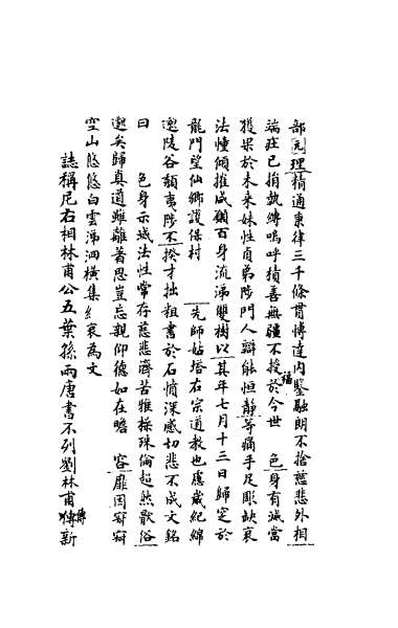 部玄理精通東律三千條貫博達內鑒融朗不捨慈悲外相
端莊已捐執縛嗚呼積善無疆不授於今世　色身有滅當
福
獲果於未來妹性貞弟陟門人辯能恒靜等痛手足彫缺哀
法幢傾摧咸願百身流涕雙樹以其年七月十三日歸窆於
龍門望仙鄉護保村　先師姑塔右宗道教也慮歲紀綿
邈陵谷頹夷陟不揆才拙粗書於石憤深感切悲不成文銘
曰　色身示滅法性常存慈悲濟苦雅操殊倫超然厭俗
邈矣歸真道雖離著思豈忘親仰德如在瞻　容靡因寂寂
空山悠悠白雲涕泗橫集紀哀為文
誌稱尼右相林甫公五葉孫兩唐書不列劉林甫傳新